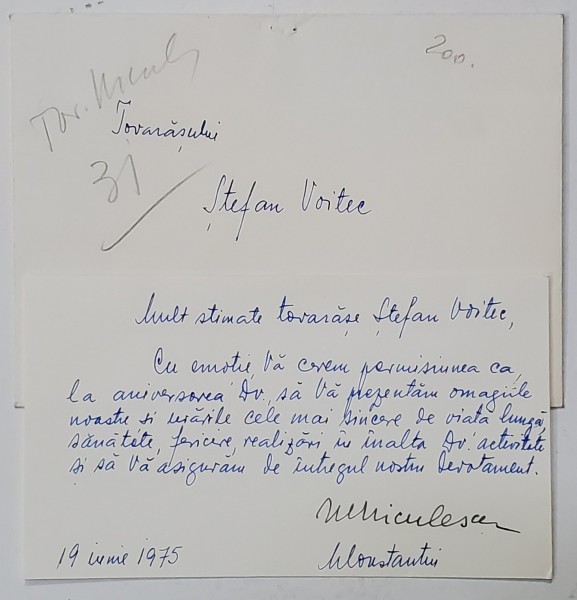 200.
Tov. Nicul
Tovarășului
31
Ștefan Voitec
Mult stimate tovarășe Ștefan Voitec,
Cu emoție, Vă cerem permisiunea ca,
la aniversarea Dv., să Vă prezentăm omagiile
noastre si urările cele mai sincere de viată lungă,
sănătate, fericire, realizări în înalta Dv. activitate
și să Vă asigurăm de întregul nostru devotament.
Niculescu
19 iunie 1975
Constantin